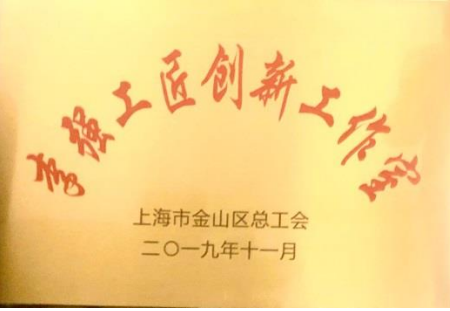 李强工匠创新工作室
上海市金山区总工会
二〇一九年十一月